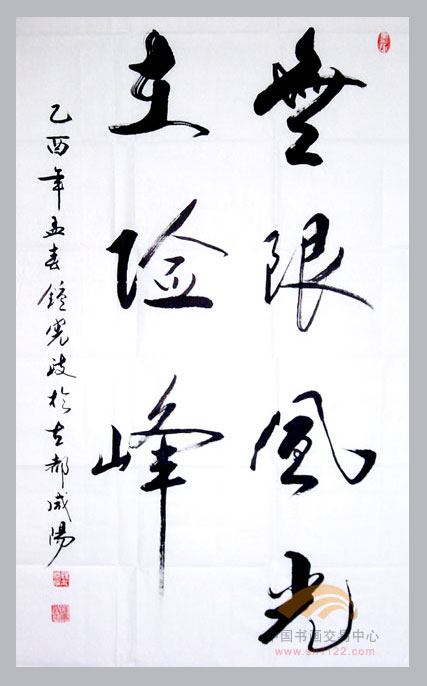 無限風光
在险峰
乙酉年孟春鐘於古都咸陽
中国书画交易中心
www.sh1122.com